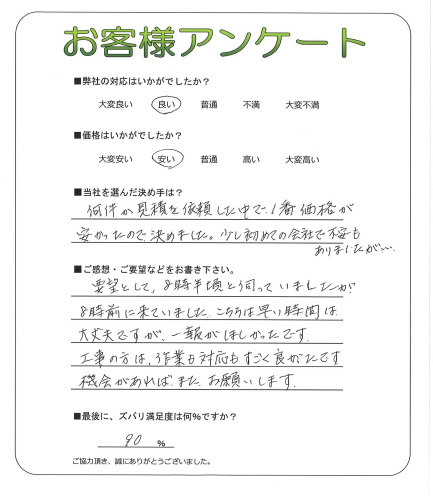 お客様アンケート
■弊社の対応はいかがでしたか？
大変良い 良い 普通 不満 大変不満
■価格はいかがでしたか？
大変安い 安い 普通 高い 大変高い
■当社を選んだ決め手は？
何件か見積を依頼した中で、1番価格が
安かったので決めました。少し初めての会社で不安も
ありましたが…
■ご感想・ご要望などをお書き下さい。
要望として、8時半頃と伺っていましたが
8時前に来ていました。こちらは早い時間は
大丈夫ですが、一報がほしかったです。
工事の方は、作業も対応もすごく良かたです
機会があれば、また、お願いします。
■最後に、ズバリ満足度は何%ですか？
90 %
ご協力頂き、誠にありがとうございました。